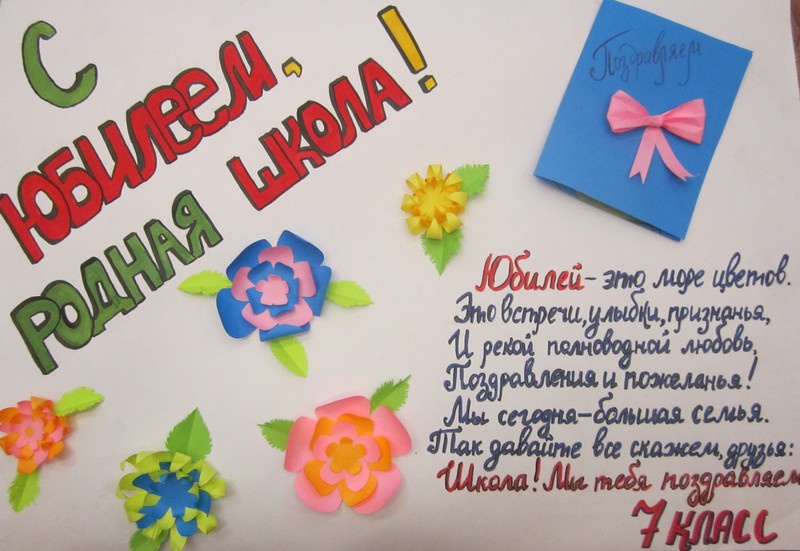 С
ЮБИЛЕЕМ,
РОДНАЯ ШКОЛА!
Поздравляем
Юбилей - это море цветов.
Это встречи, улыбки, признанья,
И рекой полноводной любовь,
Поздравления и пожеланья!
Мы сегодня - большая семья.
Так давайте все скажем, друзья:
Школа! Мы тебя поздравляем
7 КЛАСС